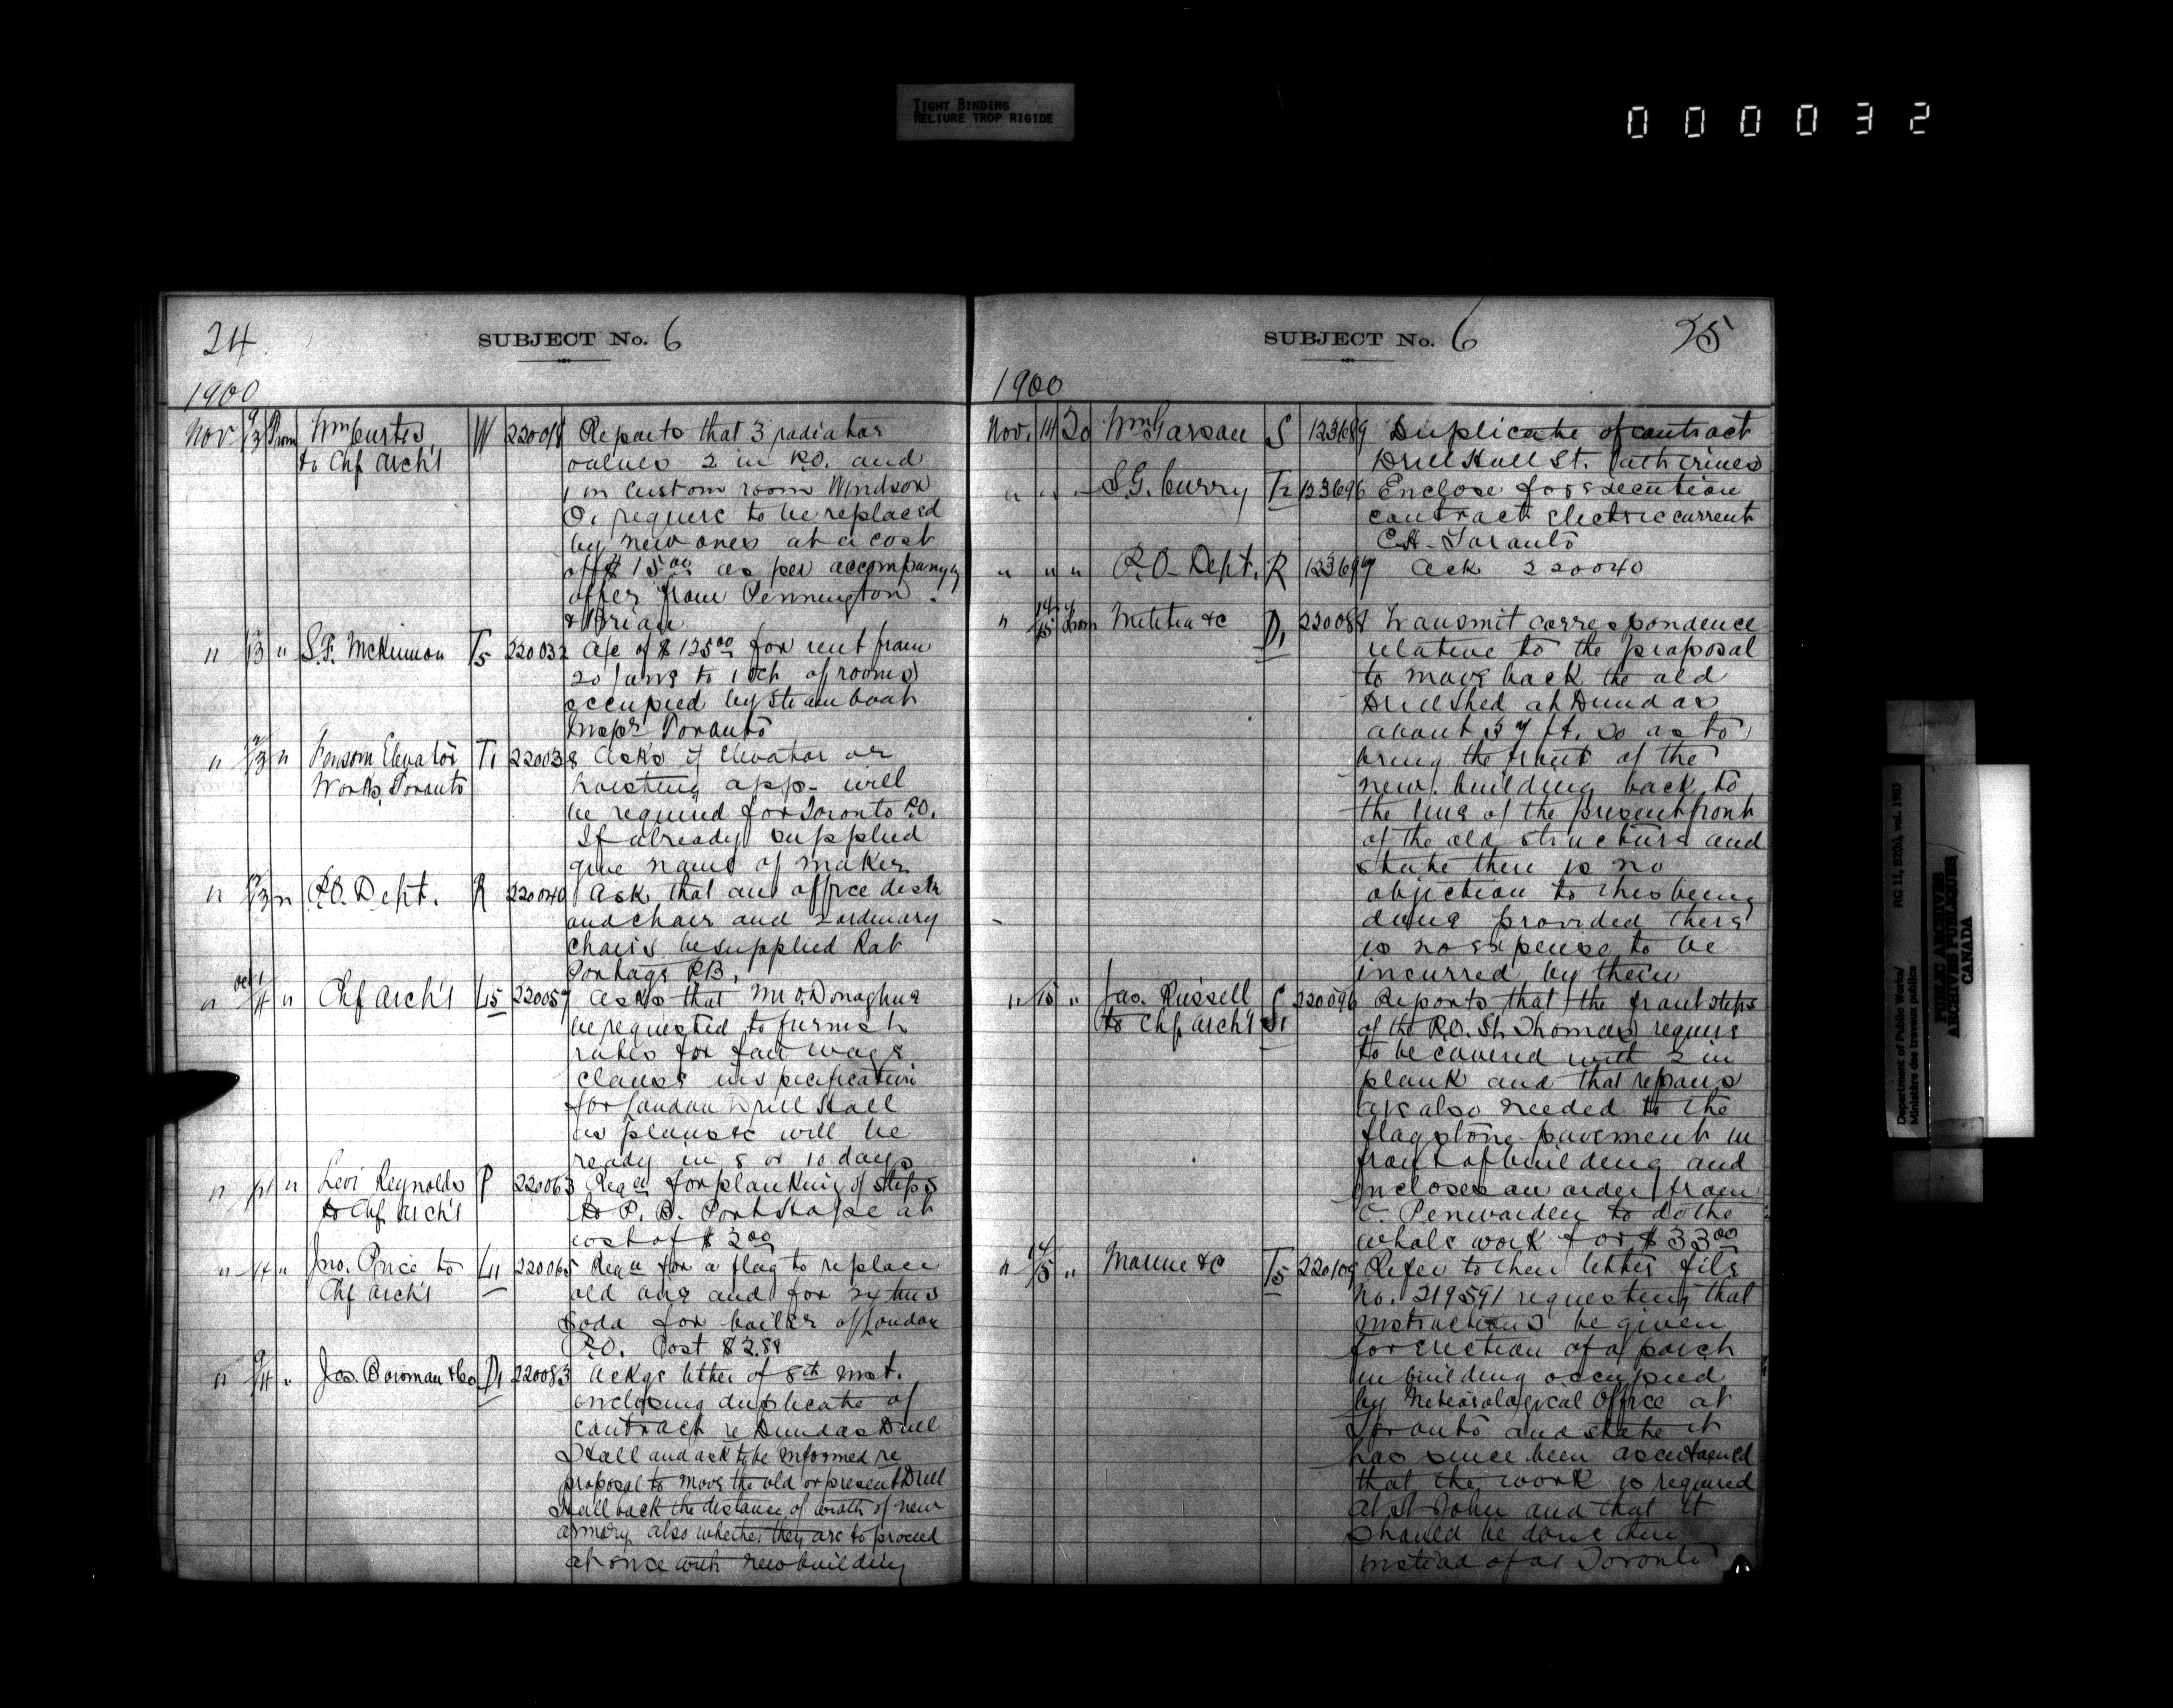 TIGHT BINDING
RELIURE TROP RIGIDE
000032
24
SUBJECT No. 6
1900
Nov 9/13 From Wm Curtis, W 22001 Reports that 3 radiator
to Chf Arch't valves 2 in P.O. and
1 in Custom room Windsor
O. require to be replaced
by new ones at a cost
of $15.00 as per accompanyg
offer from Pennington
& Brian
" 13 " S.F. McKinnon T5 220032 a/c of $125.00 for rent from
20 to 1 Oct of rooms
occupied by Steamboat
Inspr Toronto
" 12/13 " Fensom Elevator T1 220038 Asks if Elevator or
Works, Toronto hoisting app- will
be required for Toronto P.O.
If already supplied
give name of maker
" 13 " P.O. Dept. R 220040 Ask that an office desk
and chair and 2 ordinary
chairs be supplied Rat
Portage P.B.
" 14 " Chf Arch't L15 220057 Asks that Mr O'Donaghue
be requested to furnish
rates for fair wage
clause in specification
for London Drill Hall
as plans &c will be
ready in 8 or 10 days
" 14 " Levi Reynolds P 220063 Reqn for planking of steps
to Chf Arch't to P.B. Port Hope at
cost of $3.00
" 14 " Jno. Price to L11 220065 Reqn for a flag to replace
Chf Arch't old one and for
soda for boiler of London
P.O. Cost $2.88
" 9/14 " Jas. Bowman & Co. D1 220083 Ackgs letter of 8th inst.
enclosing duplicate of
contract re Dundas Drill
Hall and ask to be informed re
proposal to move the old or present Drill
Hall back the distance of width of new
armory also whether they are to proceed
at once with new building
SUBJECT No. 6
25
1900
Nov. 14 To Wm Garson S 123689 Duplicate of contract
Drill Hall St. Catherines
" " " S.G. Curry T2 123696 Enclose for execution
contract electric current
C.H. Toronto
" " " P.O. Dept. R 123697 Ack 220040
" 14/15 From Militia &c D1 220088 Transmit correspondence
relative to the proposal
to move back the old
Drill Shed at Dundas
about 37 ft. so as to
bring the front of the
new building back to
the line of the present front
of the old structure and
state there is no
objection to this being
done provided there
is no expense to be
incurred by them
" 15 " Jas. Russell S 220096 Reports that the front steps
to Chf Arch't of the P.O. St. Thomas require
to be covered with 2 in
plank and that repairs
are also needed to the
flagstone pavement in
front of building and
encloses an order from
C. Penwarden to do the
whole work for $33.00
" 14/15 " Marine &c T5 220109 Refer to their letter file
No. 219591 requesting that
instructions be given
for erection of a porch
in building occupied
by Meteorological Office at
Toronto and state it
has since been ascertained
that the work is required
at St John and that it
should be done there
instead of at Toronto
Department of Public Works/ RG 11, B2(b), vol. 1903
Ministère des travaux publics
PUBLIC ARCHIVES
ARCHIVES PUBLIQUES
CANADA